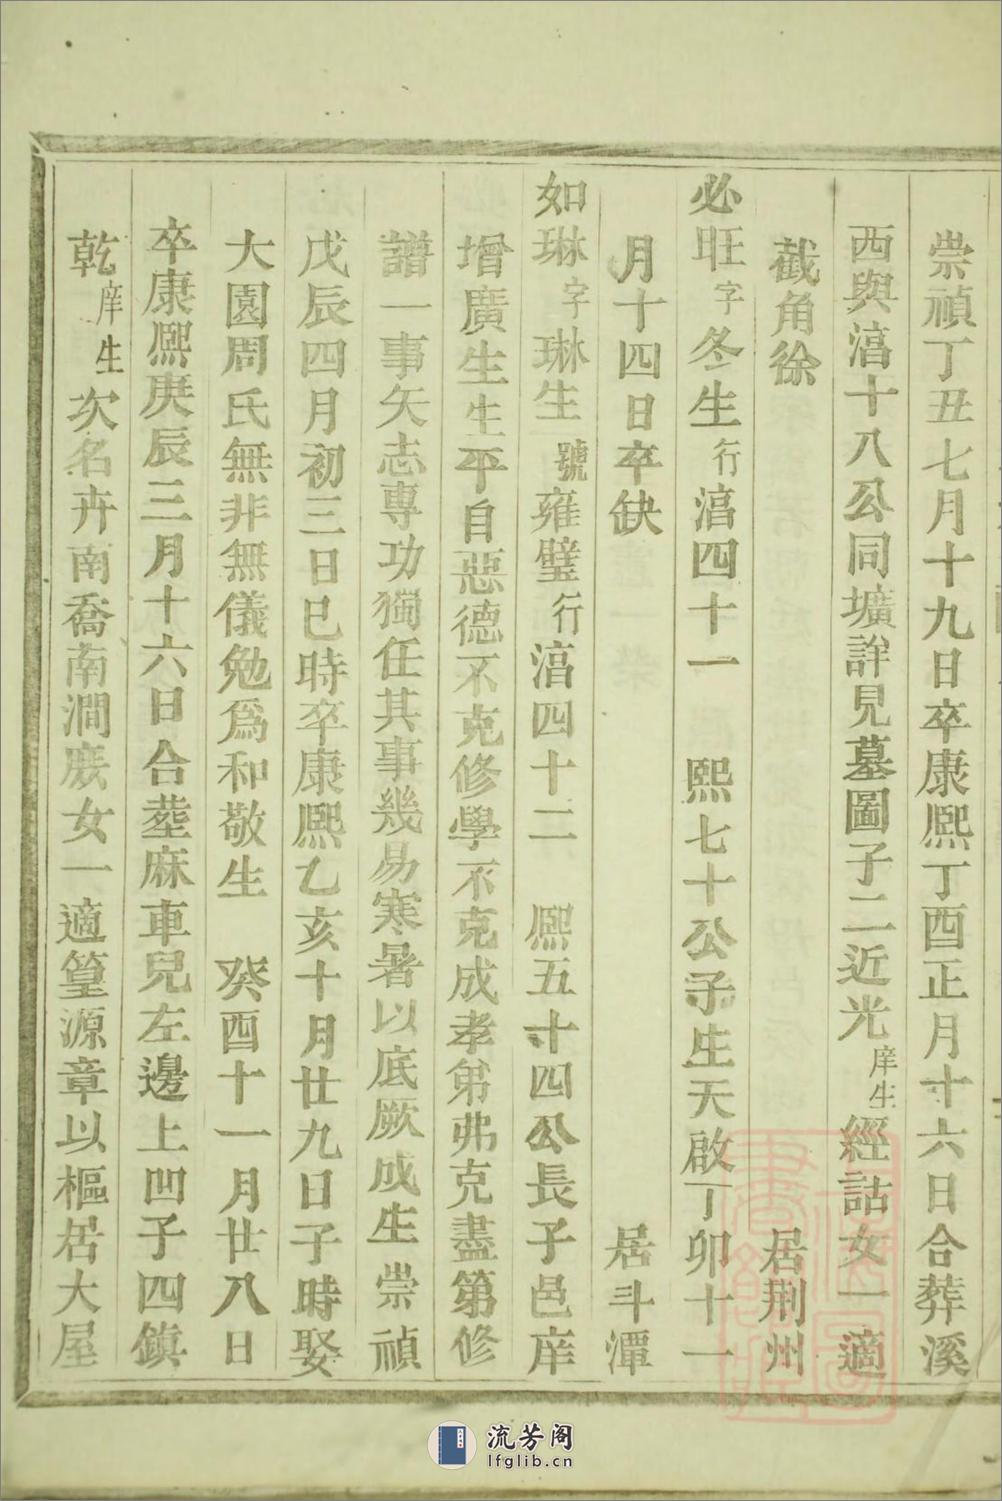 崇禎丁丑七月十九日卒康熙丁酉正月十六日合葬溪
西與湻十八公同壙詳見墓圖子二近光庠生經詁女一適
截角徐 居荆州
必旺字冬生行湻四十一 熙七十公子生天啟丁卯十一
月十四日卒缺 居斗潭
如琳字琳生號雍璧行湻四十二 熙五十四公長子邑庠
增廣生生平自惡德不克修學不克成孝弟弗克盡第修
譜一事矢志專功獨任其事幾易寒暑以底厥成生崇禎
戊辰四月初三日巳時卒康熙乙亥十月廿九日子時娶
大園周氏無非無儀勉爲和敬生 癸酉十一月廿八日
卒康熙庚辰三月十六日合塟麻車兒左邊上凹子四鎮
乾庠生次名卉南喬南澗庻女一適篁源章以樞居大屋
流芳阁
lfglib.cn